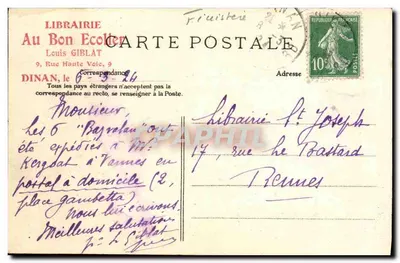 LIBRAIRIE
Au Bon Ecolier
Louis GIBLAT
9, Rue Haute Voie, 9
DINAN, le 6-3-24
CARTE POSTALE
Correspondance
Adresse
Tous les pays étrangers n'acceptent pas la
correspondance au recto, se renseigner à la Poste.
Monsieur,
Les 6 ont
été expédiés à Mr
à Vannes en
postal à domicile (2,
place gambetta)
Nous lui écrivons.
Meilleures salutations
Giblat
Librairie St Joseph
17, rue Le Bastard
Rennes
DINAN
10c